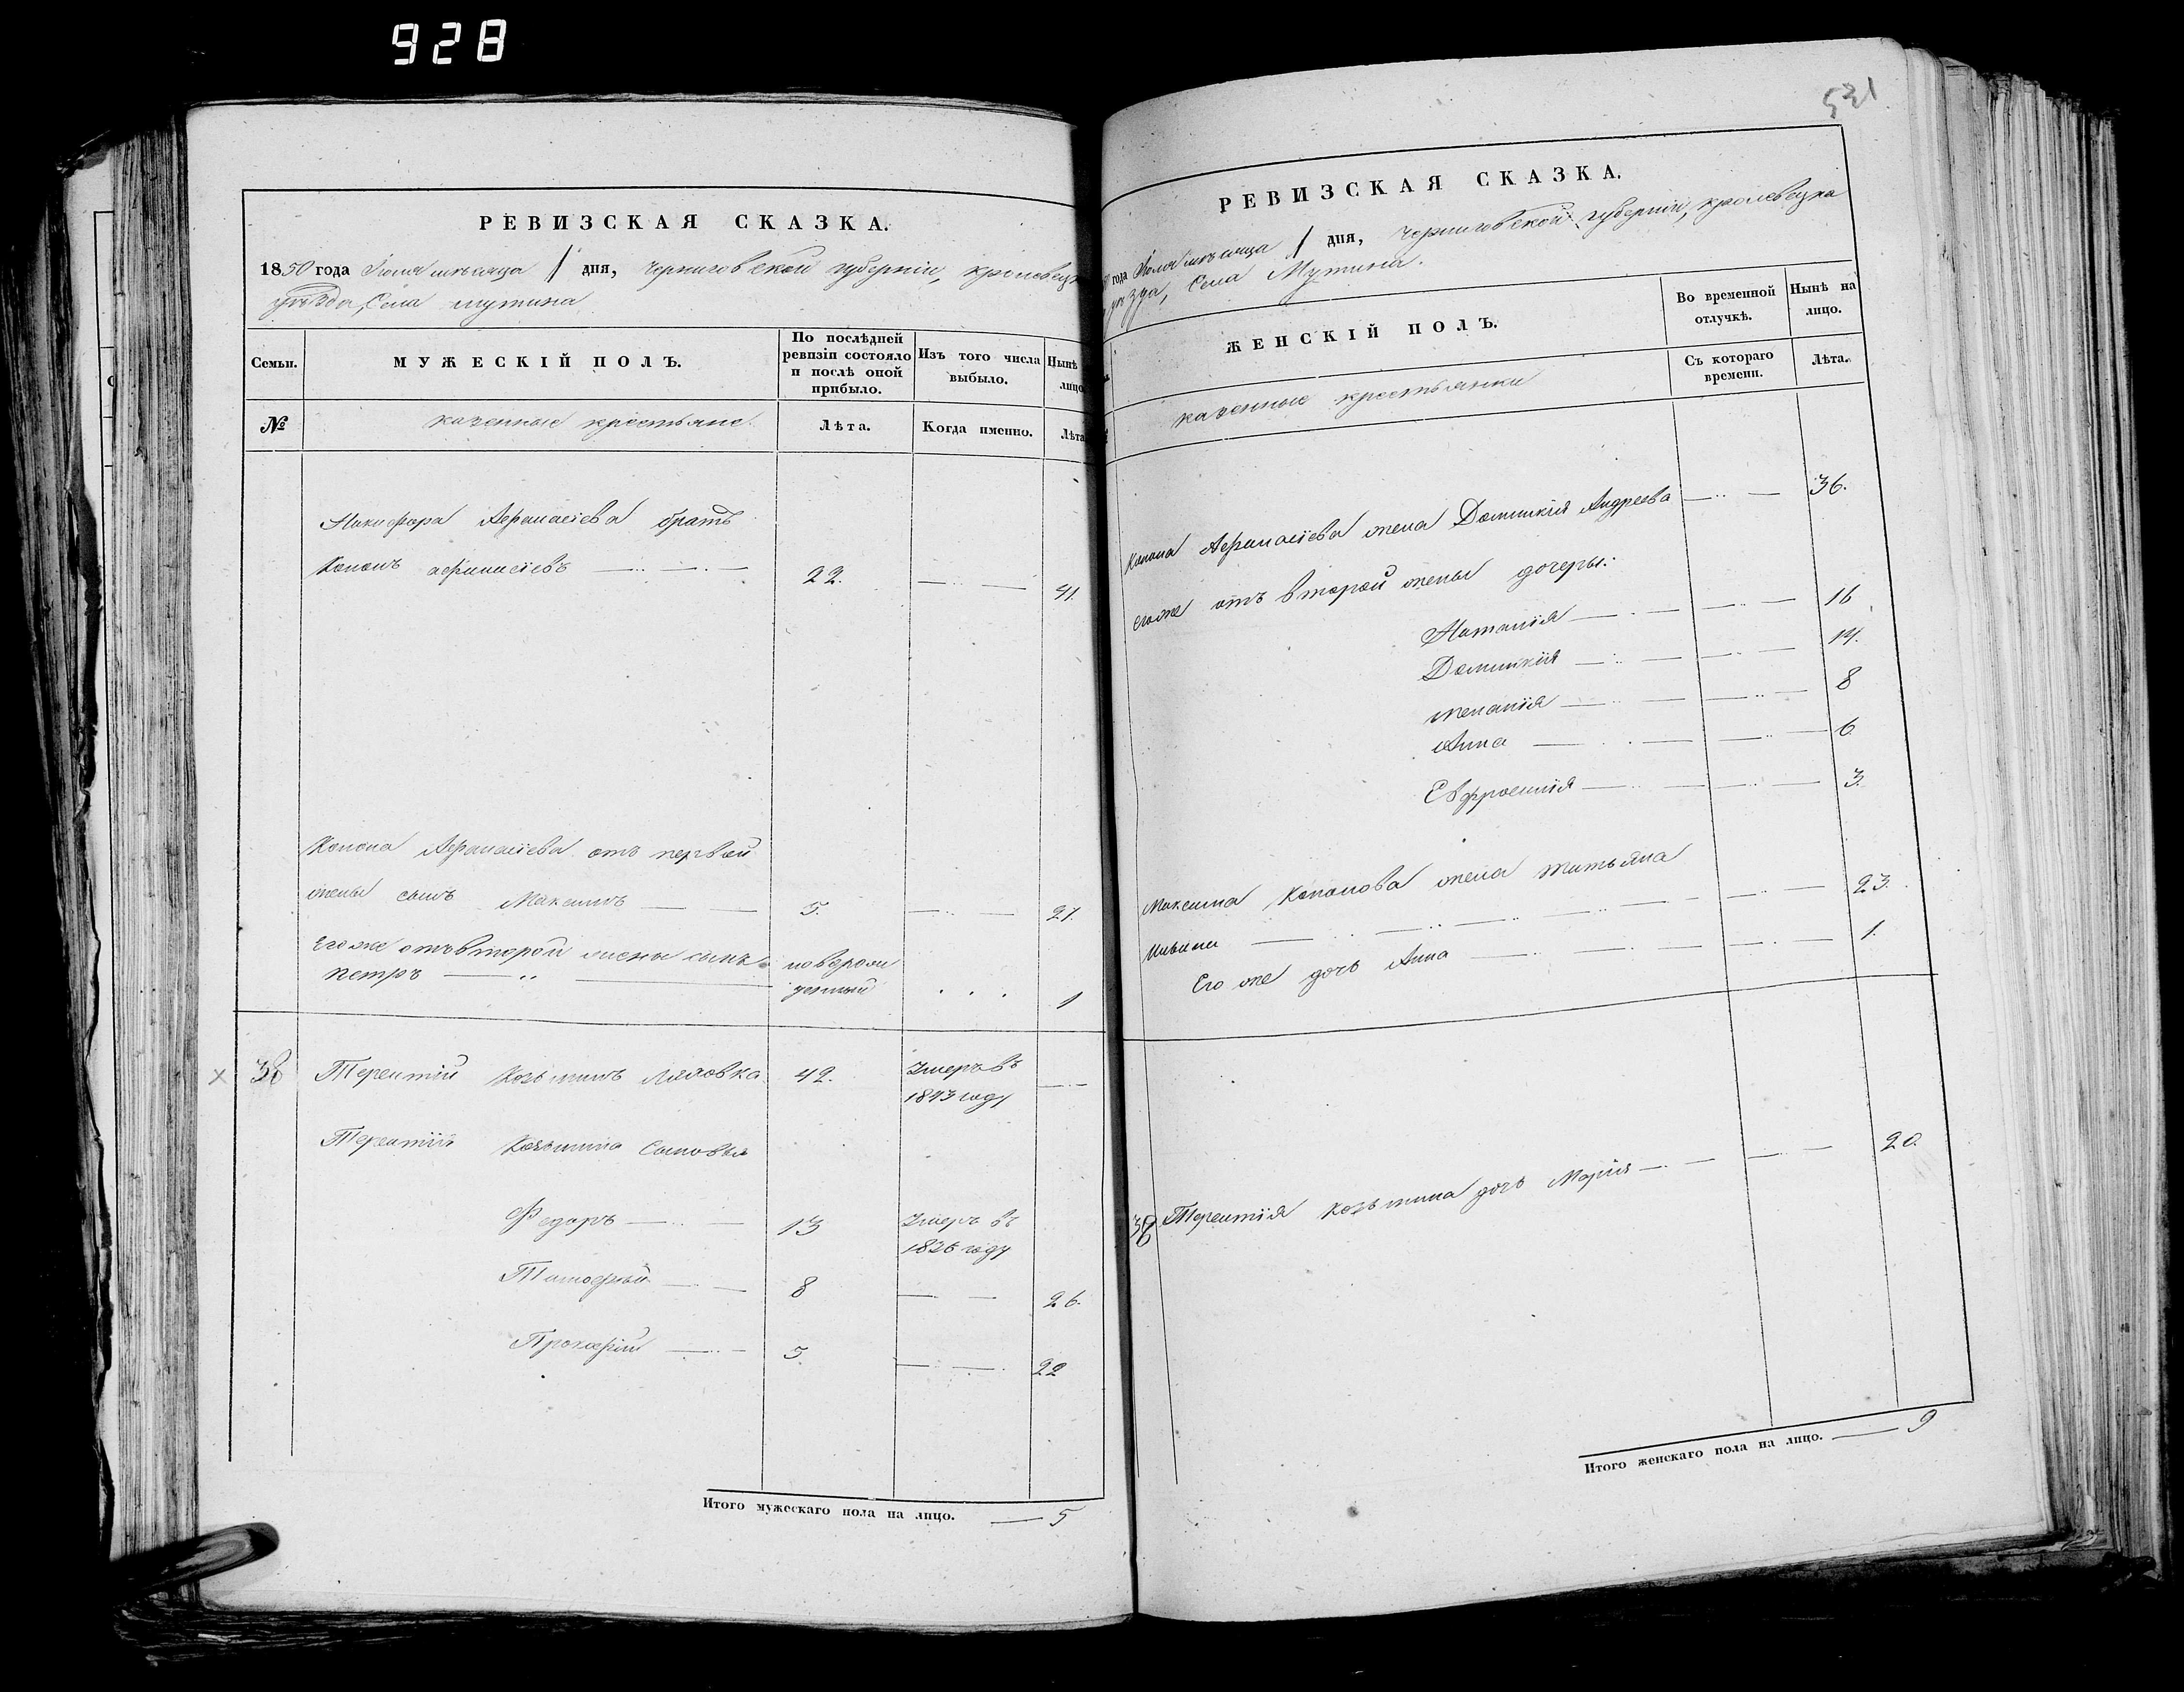 928
РЕВИЗСКАЯ СКАЗКА.
1850 года Іюля мѣсяца 1 дня, Черниговской губерніи, кролевецка
уѣзда, Села мутина
Семьи.
МУЖЕСКІЙ ПОЛЪ.
По послѣдней
ревизіи состояло
и послѣ оной
прибыло.
Изъ того числа
выбыло.
Нынѣ
лицо
№
казенные крестьяне.
Лѣта.
Когда именно.
Лѣта
Никифора Афанасіева братъ
Кононъ афанасіевъ 22. 41.
Конона Афанасіева отъ первой
жены сынъ Максимъ 5. 21.
Его же отъ второй жены сынъ
петръ новорож
денный 1
38 Терентій Козьминъ 42. Умеръ въ
1843 году
Терентія Козьмина Сыновья
Федоръ 13 Умеръ въ
1836 году
Тимофей 8 26.
Прокофій 5 22
Итого мужескаго пола на лицо. 5
531
РЕВИЗСКАЯ СКАЗКА.
года Іюля мѣсяца 1 дня, Черниговской губерніи, кролевецка
уѣзда, Села Мутина.
ЖЕНСКІЙ ПОЛЪ.
Во временной
отлучкѣ.
Нынѣ на
лицо.
Съ котораго
времени.
Лѣта.
казенные крестьянки
Конона Афанасіева жена Домникія Андреева 36.
его же отъ второй жены дочеры:
Наталія 16
Домникія 14.
меланія 8
Анна 6
Евфросинія 3.
Максима Кононова жена татьяна
23.
Его же дочь Анна 1.
38 Терентія Козьмина дочь Марія 20.
Итого женскаго пола на лицо. 9